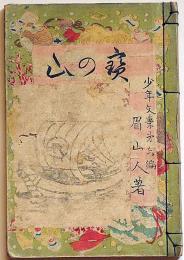 寳の山
少年文學第七編
眉山人著